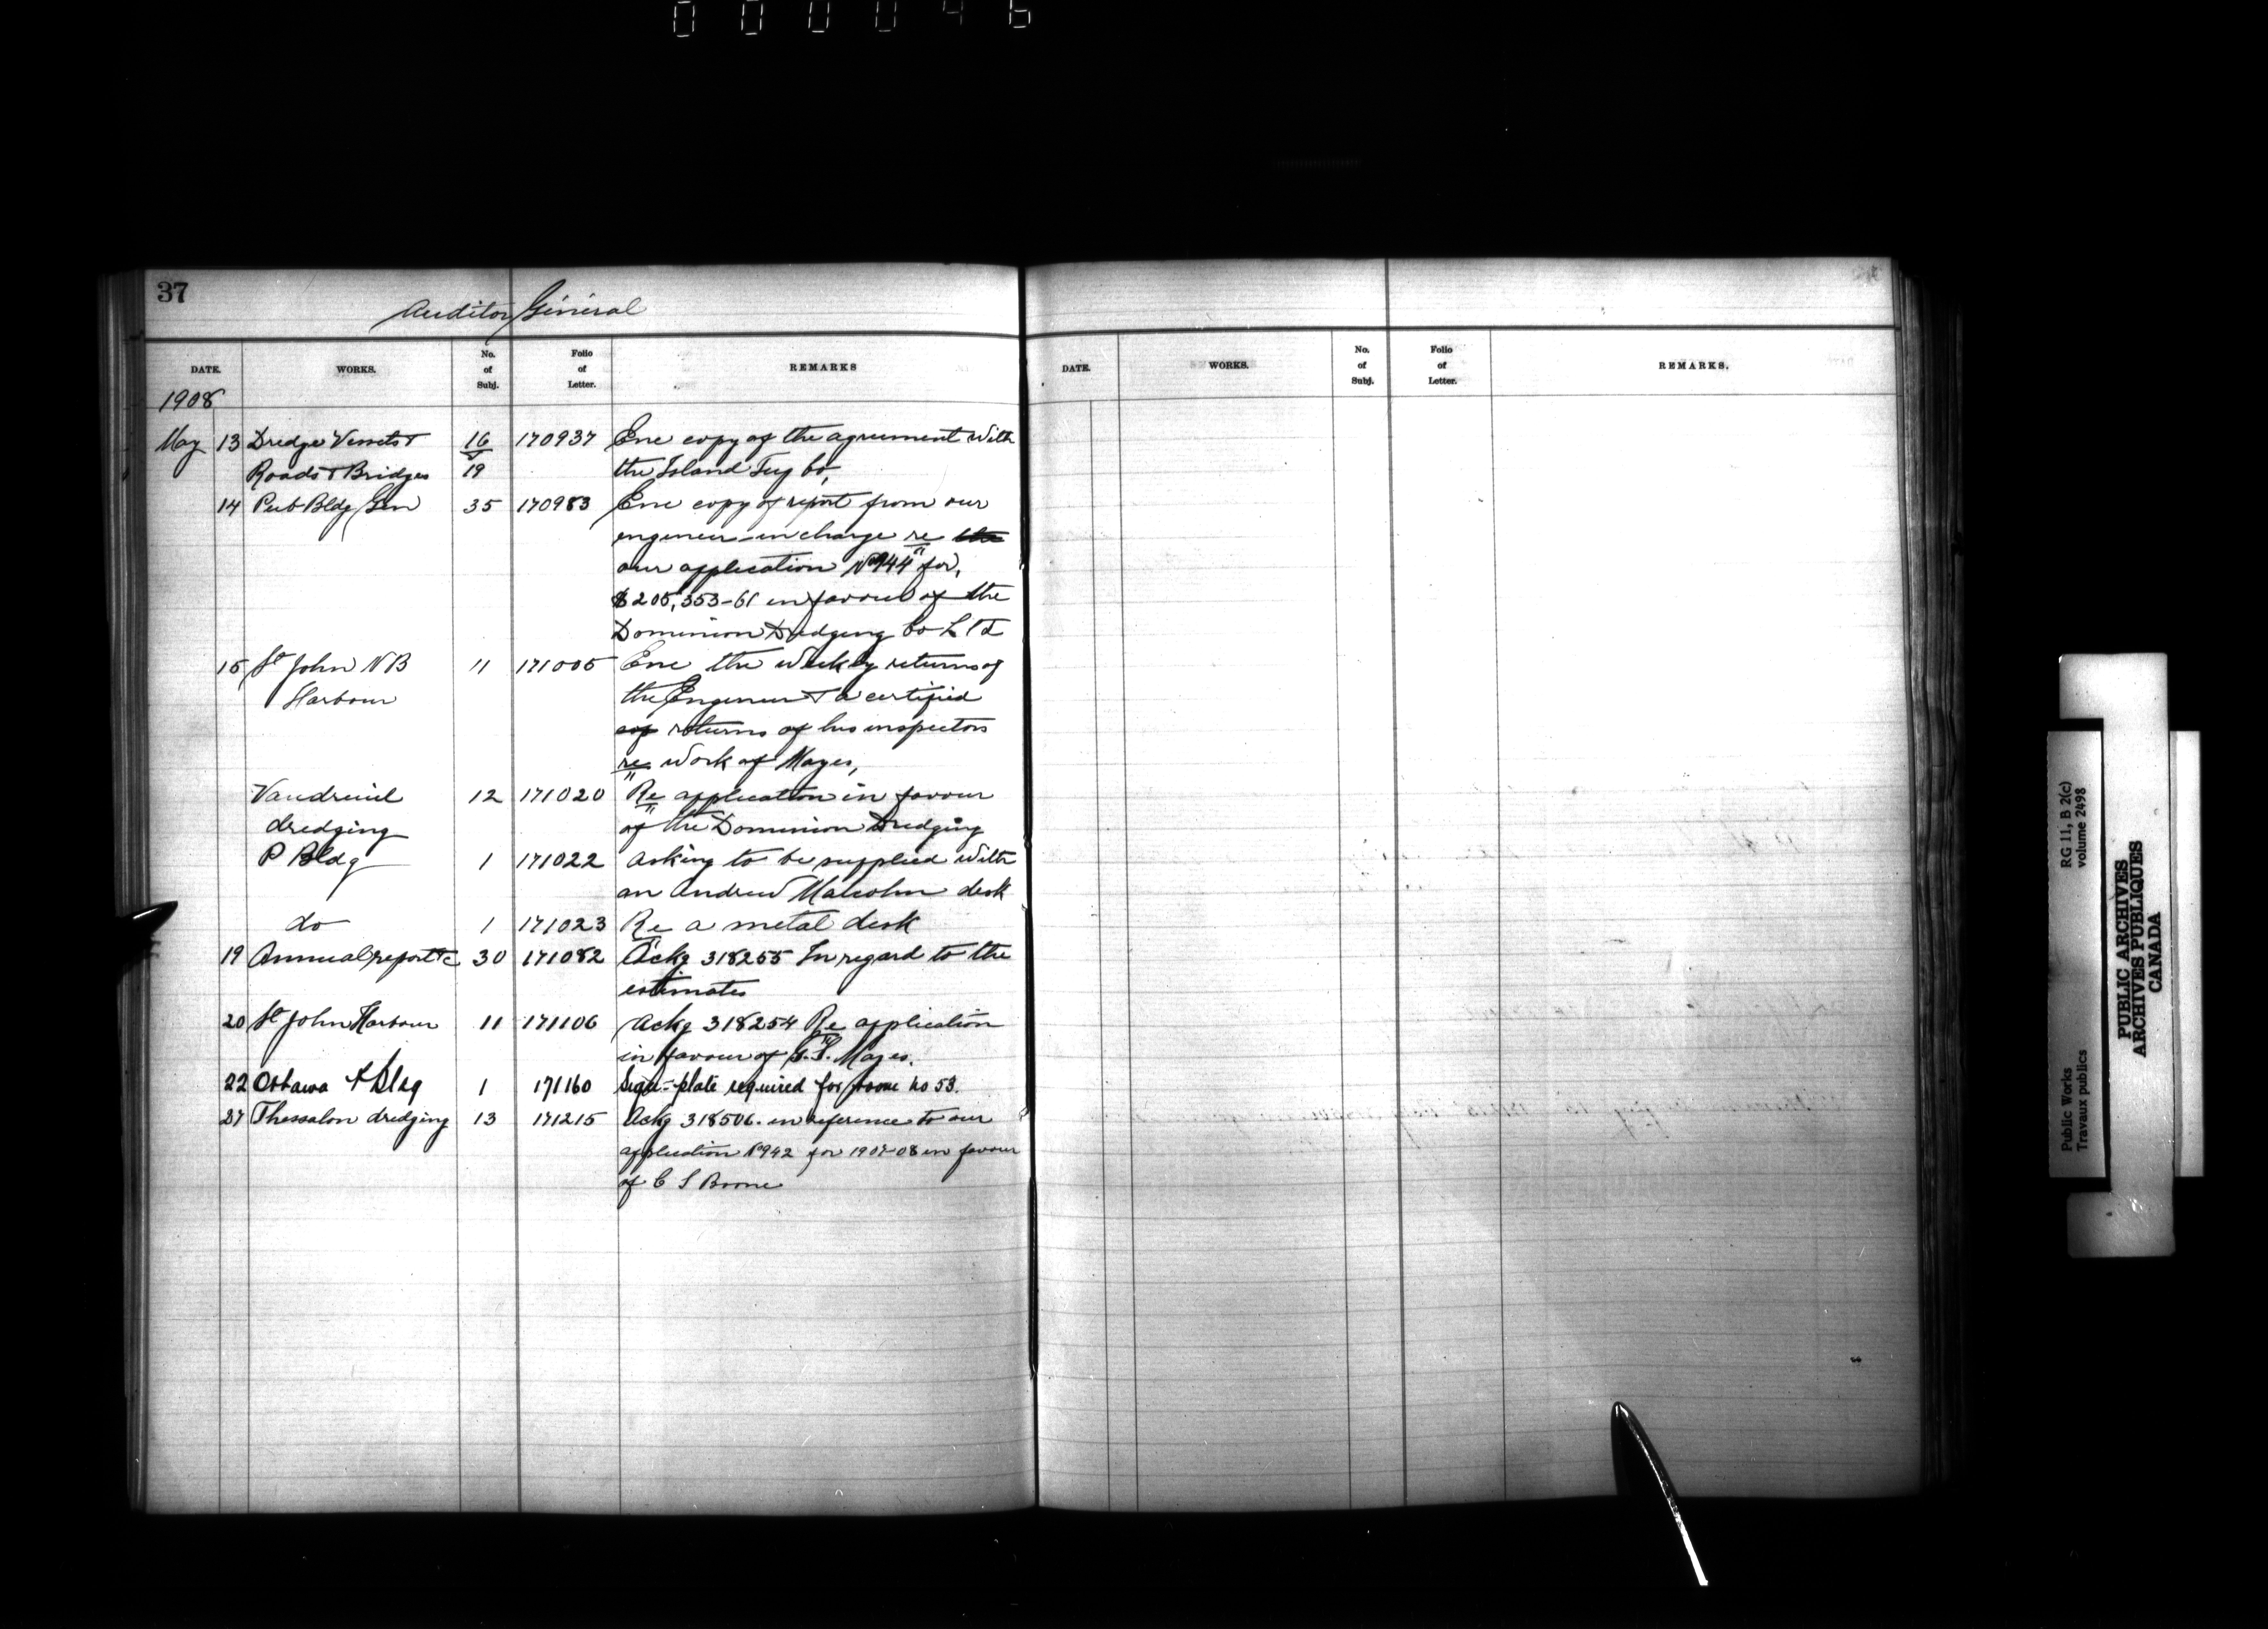 000046
37
Auditor General
DATE. WORKS. No. of Subj. Folio of Letter. REMARKS
DATE. WORKS. No. of Subj. Folio of Letter. REMARKS.
1908
May 13 Dredge Vessels & 16 170937 Enc copy of the agreement with
Roads & Bridges 19 the Island Tug Co,
14 Pub Bldg Gen 35 170983 Enc copy of report from our
engineer-in charge re the
our application No 944 for,
$205,353-61 in favour of the
Dominion Dredging Co Ltd
15 St John N B 11 171005 Enc the weekly returns of
Harbour the Engineer & a certified
cop returns of his inspectors
re work of Mayes,
Vaudreuil 12 171020 Re application in favour
dredging of the Dominion Dredging
P Bldg 1 171022 Asking to be supplied with
an Andrew Malcolm desk
do 1 171023 Re a metal desk
19 Annual report &c 30 171082 Ackg 318255 In regard to the
estimates
20 St John Harbour 11 171106 Ackg 318254 Re application
in favour of G.S. Mayes.
22 Ottawa P Bldg 1 171160 Sign-plate required for room no 53.
27 Thessalon dredging 13 171215 Ackg 318506. in reference to our
application No 942 for 1907-08 in favour
of C S Boone
RG 11, B 2(c)
volume 2498
Public Works
Travaux publics
PUBLIC ARCHIVES
ARCHIVES PUBLIQUES
CANADA